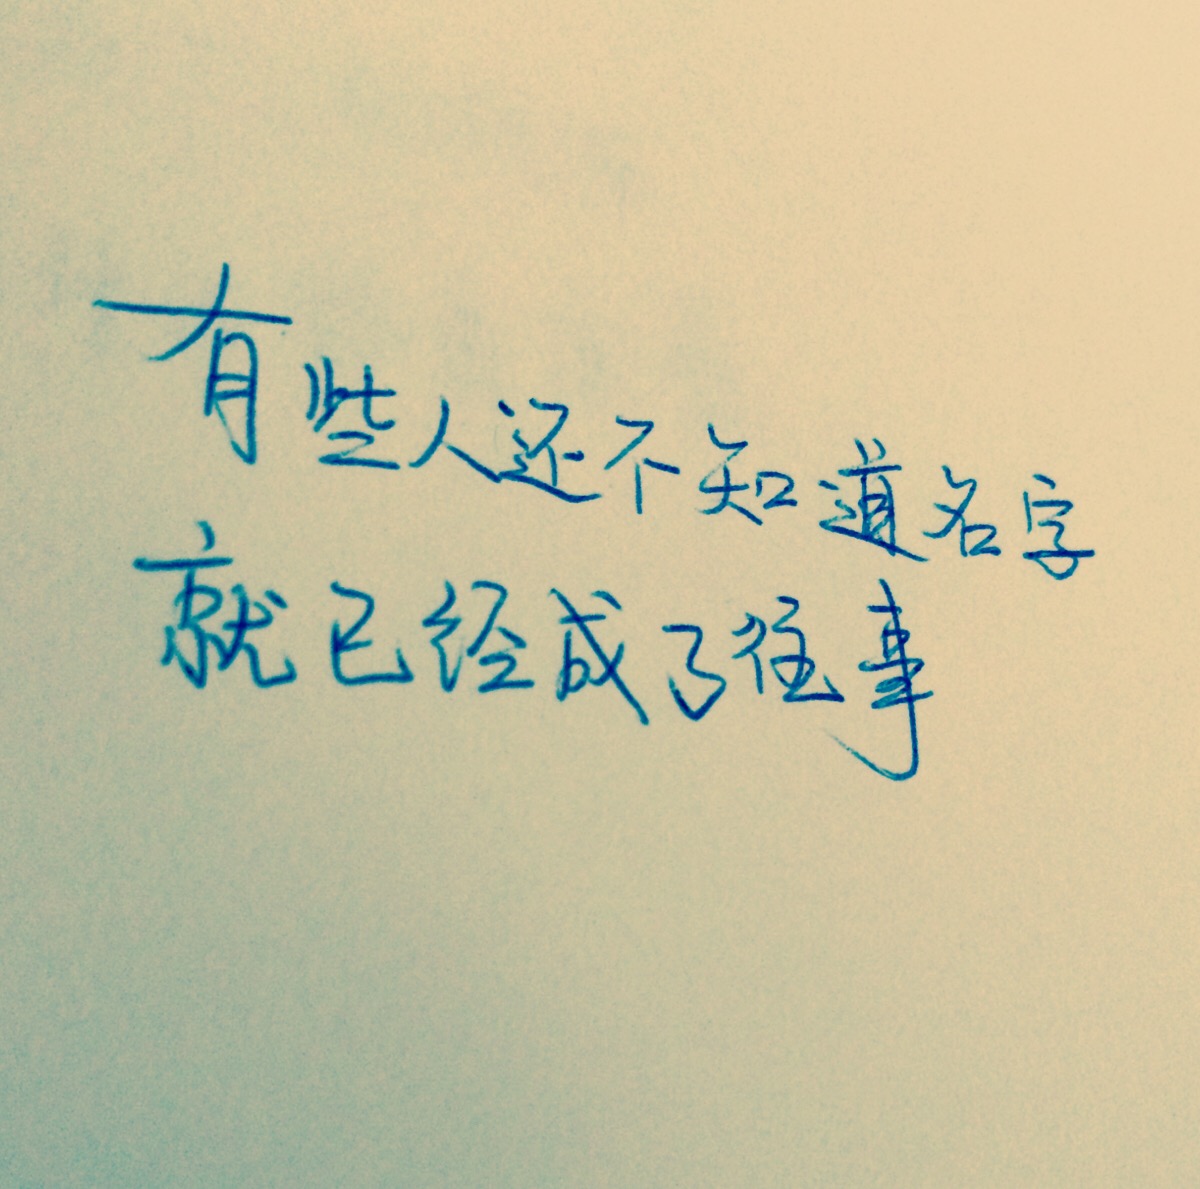 有些人还不知道名字
就已经成了往事